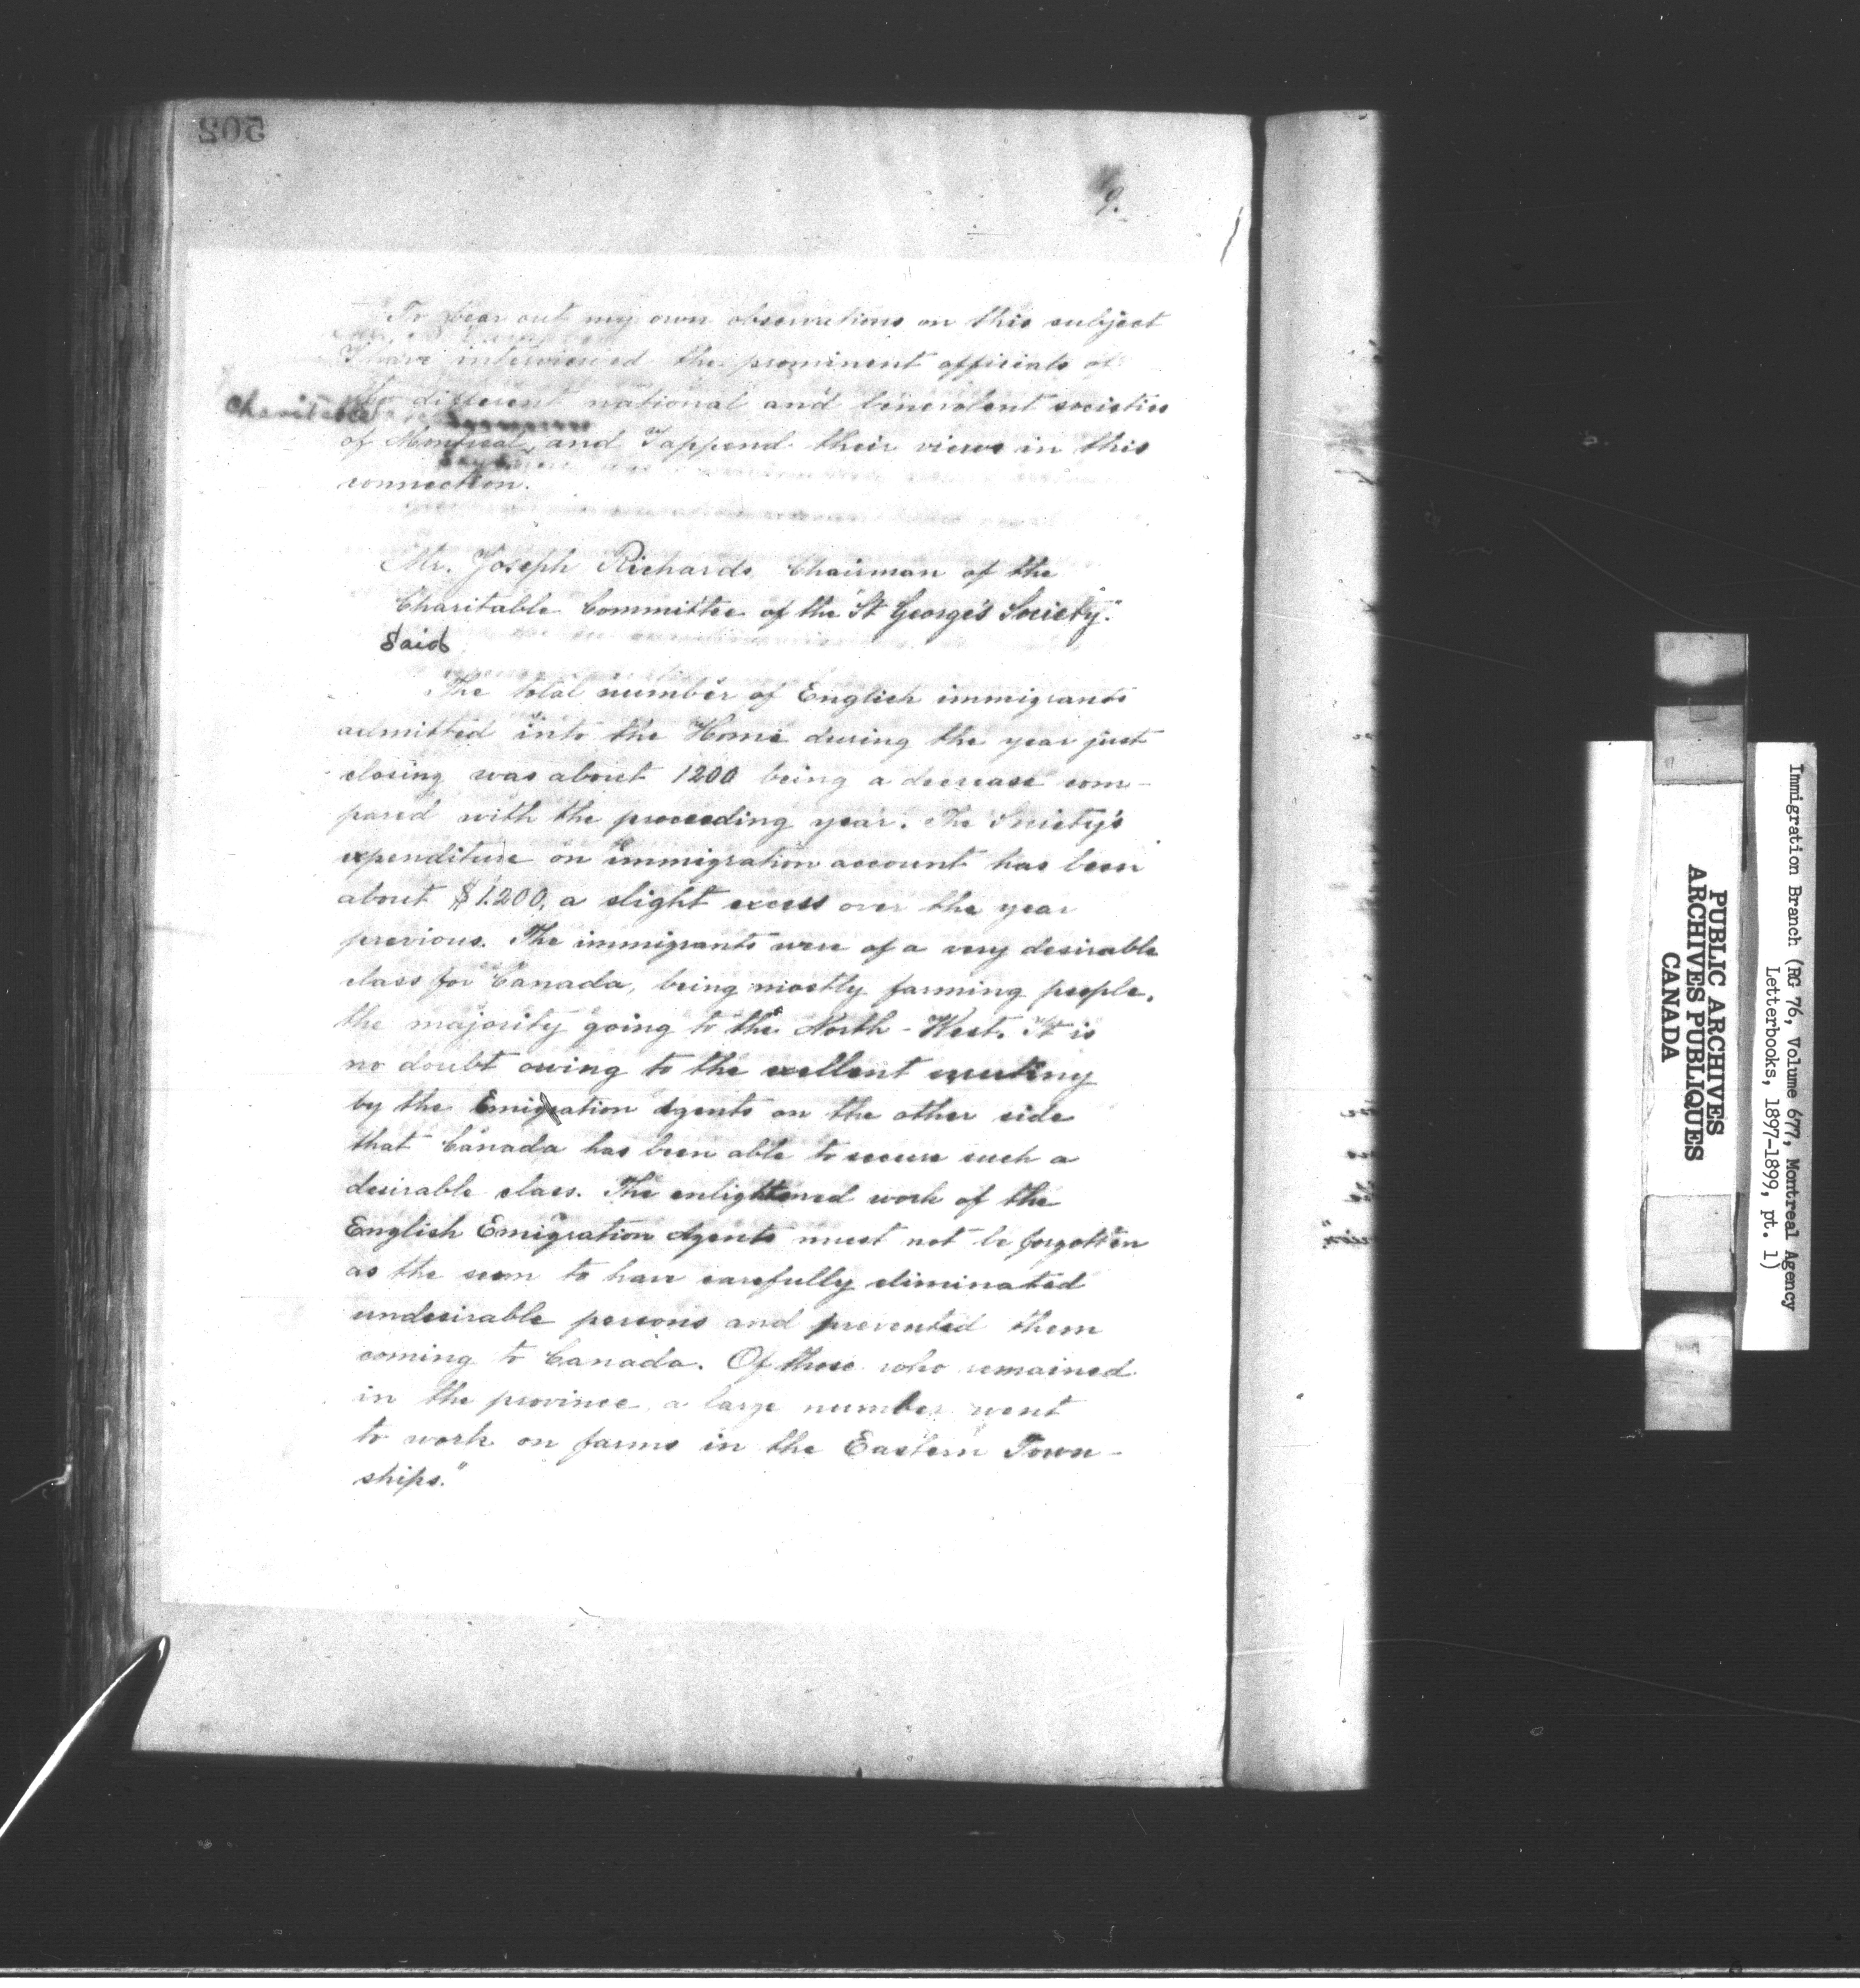 502
9.
To bear out my own observations on this subject
I have interviewed the prominent officials of
the different national and benevolent societies
Charitable
of Montreal, and I append their views in this
connection.
Mr. Joseph Richards, Chairman of the
Charitable Committee of the "St George's Society."
Said
The total number of English immigrants
admitted into the Home during the year just
closing was about 1200 being a decrease com-
pared with the proceeding year. The Society's
expenditure on immigration account has been
about $1200, a slight excess over the year
previous. The immigrants were of a very desirable
class for Canada, being mostly farming people,
the majority going to the North-West. It is
no doubt owing to the exellent
by the Emigration Agents on the other side
that Canada has been able to secure such a
desirable class. The enlightened work of the
English Emigration Agents must not be forgotten
as the seem to have carefully eliminated
undesirable persons and prevented them
coming to Canada. Of those who remained
in the province a large number went
to work on farms in the Eastern Town-
ships."
Immigration Branch (RG 76, Volume 677, Montreal Agency
Letterbooks, 1897-1899, pt. 1)
PUBLIC ARCHIVES
ARCHIVES PUBLIQUES
CANADA